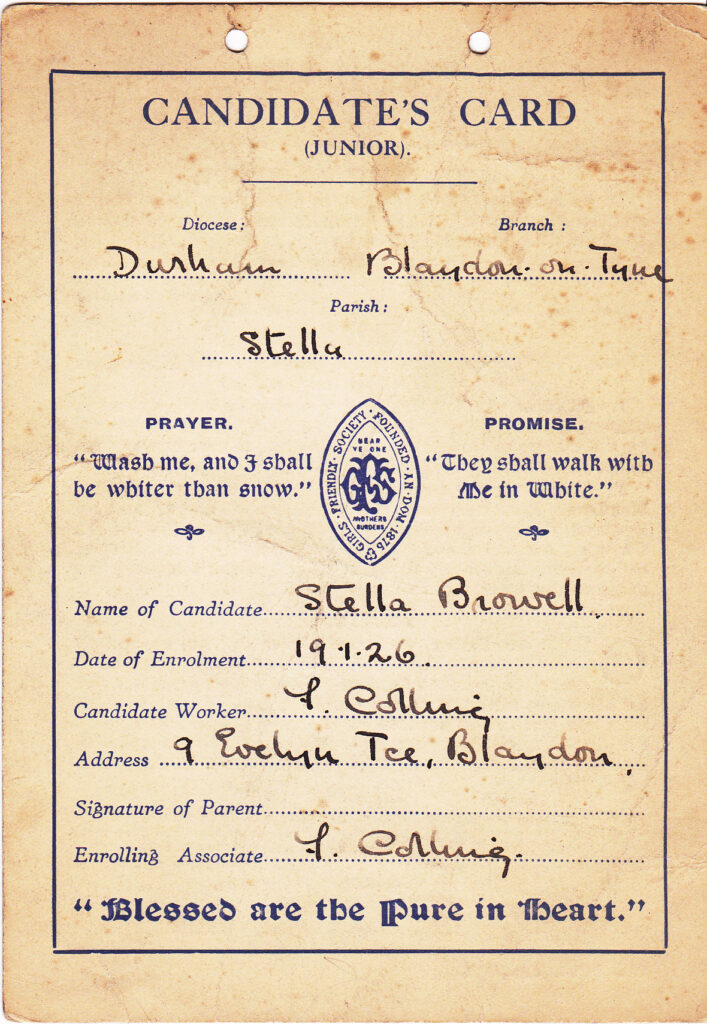 CANDIDATE'S CARD
(JUNIOR).
Diocese: Branch :
Durham Blaydon-on-Tyne
Parish:
Stella
PRAYER.
"Wash me, and I shall
be whiter than snow."
GIRLS · FRIENDLY · SOCIETY · FOUNDED · DOM
BEAR
YE ONE
GFS
ANOTHERS
BURDENS
PROMISE.
"They shall walk with
Me in White."
Name of Candidate Stella Browell
Date of Enrolment 19.1.26.
Candidate Worker F. Colling
Address 9 Evelyn Tce, Blaydon.
Signature of Parent
Enrolling Associate F. Colling.
"Blessed are the Pure in Heart."